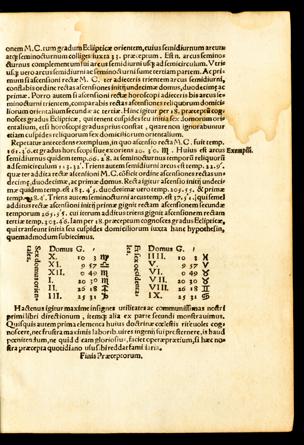 onem M.C. cum gradum Eclipticæ orientem, cuius semidiurnum arcum
atq; seminocturnum colliges iuxta præceptum. Est n. arcus seminoc
turnus complementum sui arcus semidiurni usq; ad semicirculum.
usq; vero arcus semidiurni atq; seminocturni sume tertiam partem.
si ascensioni rectæ M.C. ter adieceris trientem arcus semidiurni,
constabis ordine rectas ascensiones initij undecimæ domus, duodecimæ ac
primæ. Porro autem si ascensioni rectæ horoscopi adieceris bis arcus se
minocturni trientem, comparabis rectas ascensiones reliquorum domici
liorum orientalium secundæ ac tertiæ. Hinc igitur per 18. præceptum
cognosces gradus Eclipticæ, qui tenent cuspides seu initia sex domorum ori
entalium, est horoscopi gradus prius constat, quare non ignorabuntur
etiam cuspides reliquorum sex domiciliorum orientalium.
Repetatur antecedens exemplum, in quo ascensio recta M.C. fuit temp.
161. 26. et gradus horoscopi fuere Huius est arcus Exemplū.
Semidiurnus quidem temp. 66. 28. at seminocturnus temporū reliquorū
ad semicirculum 113. 32. Triens autem semidiurni arcus est temp. 22. 9.
quæ ter addita rectæ ascensioni M.C. cōficit ordine ascensiones rectas un
decimæ, duodecimæ, ac primæ domus. Recta igitur ascensio initij undeci
mæ quidem temp. est 183. 45. duodecimæ uero temp. 205. 55. & primæ
temp. 228. 6. Triens autem seminocturni arcus est temp. 37. 51. quæ semel
addita rectæ ascensioni initij primæ gignit rectam ascensionem secundæ
temporum 265. 55. cui iterum additus triens gignit ascensionem rectam
tertiæ temp. 303. 46. Iam per 18. præceptum cognosces gradus Eclipticæ,
qui transeunt initia seu cuspides domorum iuxta hanc hypothesin,
quemadmodum subiecimus.
Sex domus orientales.
Domus G.
X. 10 3 ♍
XI. 9 57 ♎
XII. 0 49 ♏
I. 0 40 ♏
II. 26 18 ♐
III. 25 31 ♑
Et sex occidentales.
Domus G.
IIII. 10 3 ♓
V. 9 57 ♈
VI. 0 49 ♉
VII. 0 40 ♉
VIII. 26 18 ♊
IX. 25 31 ♋
Hactenus igitur maxime insignes utilitates ac communissimas nostri
primi libri directionum, itemq; alia ex parte secundi monstrauimus.
Quisquis autem prima elementa huius doctrinæ cœlestis rite uoles cog
noscere, nec frustra maximis laborib. uires ingenij sui prosternere, is haud
pœnitendum, ne quid dicam gloriosius, faciet operæpretium, si hæc no
stra præcepta quotidiano usu sibi reddat familiaria.
Finis Præceptorum.